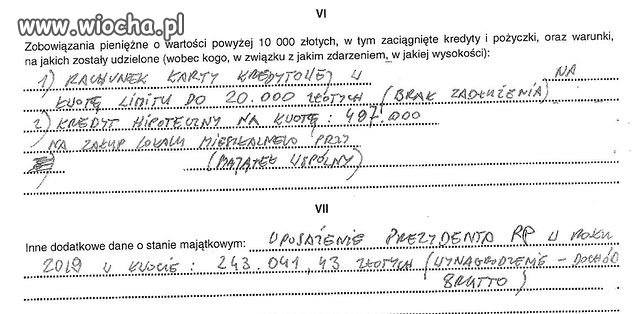 www.wiocha.pl
VI
Zobowiązania pieniężne o wartości powyżej 10 000 złotych, w tym zaciągnięte kredyty i pożyczki, oraz warunki,
na jakich zostały udzielone (wobec kogo, w związku z jakim zdarzeniem, w jakiej wysokości):
1) RACHUNEK KARTY KREDYTOWEJ W NA
KWOTĘ LIMITU DO 20.000 ZŁOTYCH (BRAK ZADŁUŻENIA)
2) KREDYT HIPOTECZNY NA KWOTĘ: 497.000
NA ZAKUP LOKALU MIESZKALNEGO PRZY
(MAJĄTEK WSPÓLNY)
VII
Inne dodatkowe dane o stanie majątkowym: UPOSAŻENIE PREZYDENTA RP W ROKU
2019 W KWOCIE: 243.041,43 ZŁOTYCH (WYNAGRODZENIE - DOCHÓD
BRUTTO)